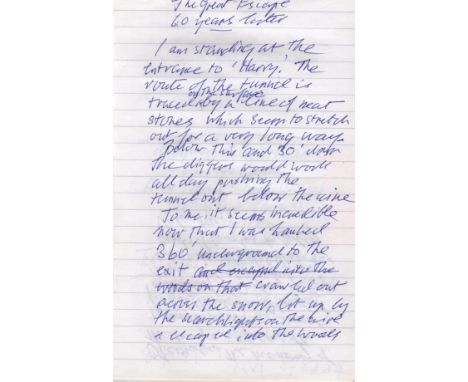 The Great Escape
60 years later
I am standing at the
entrance to 'Harry'. The
route of the tunnel is
on the surface
traced by a line of neat
stones which seem to stretch
out for a very long way.
Below this and 30' down
the diggers would work
all day pushing the
tunnel out below the wire
To me it seems incredible
now that I was hauled
360' underground to the
exit and escaped into the
woods on that crawled out
across the snow, lit up by
the searchlights on the wire
& escaped into the woods